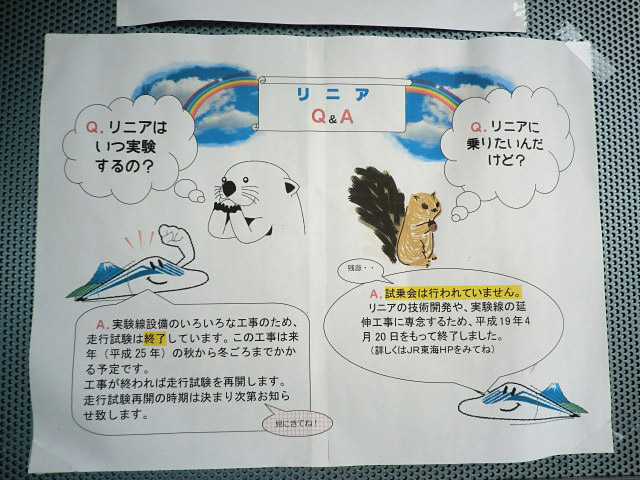 リニア
Q&A
Q.リニアは
いつ実験
するの？
Q.リニアに
乗りたいんだ
けど？
A.実験線設備のいろいろな工事のため、
走行試験は終了しています。この工事は来
年（平成25年）の秋から冬ごろまでかか
る予定です。
工事が終われば走行試験を再開します。
走行試験再開の時期は決まり次第お知ら
せ致します。
見にきてね！
残念・・
A.試乗会は行われていません。
リニアの技術開発や、実験線の延
伸工事に専念するため、平成19年4
月20日をもって終了しました。
（詳しくはJR東海HPをみてね）